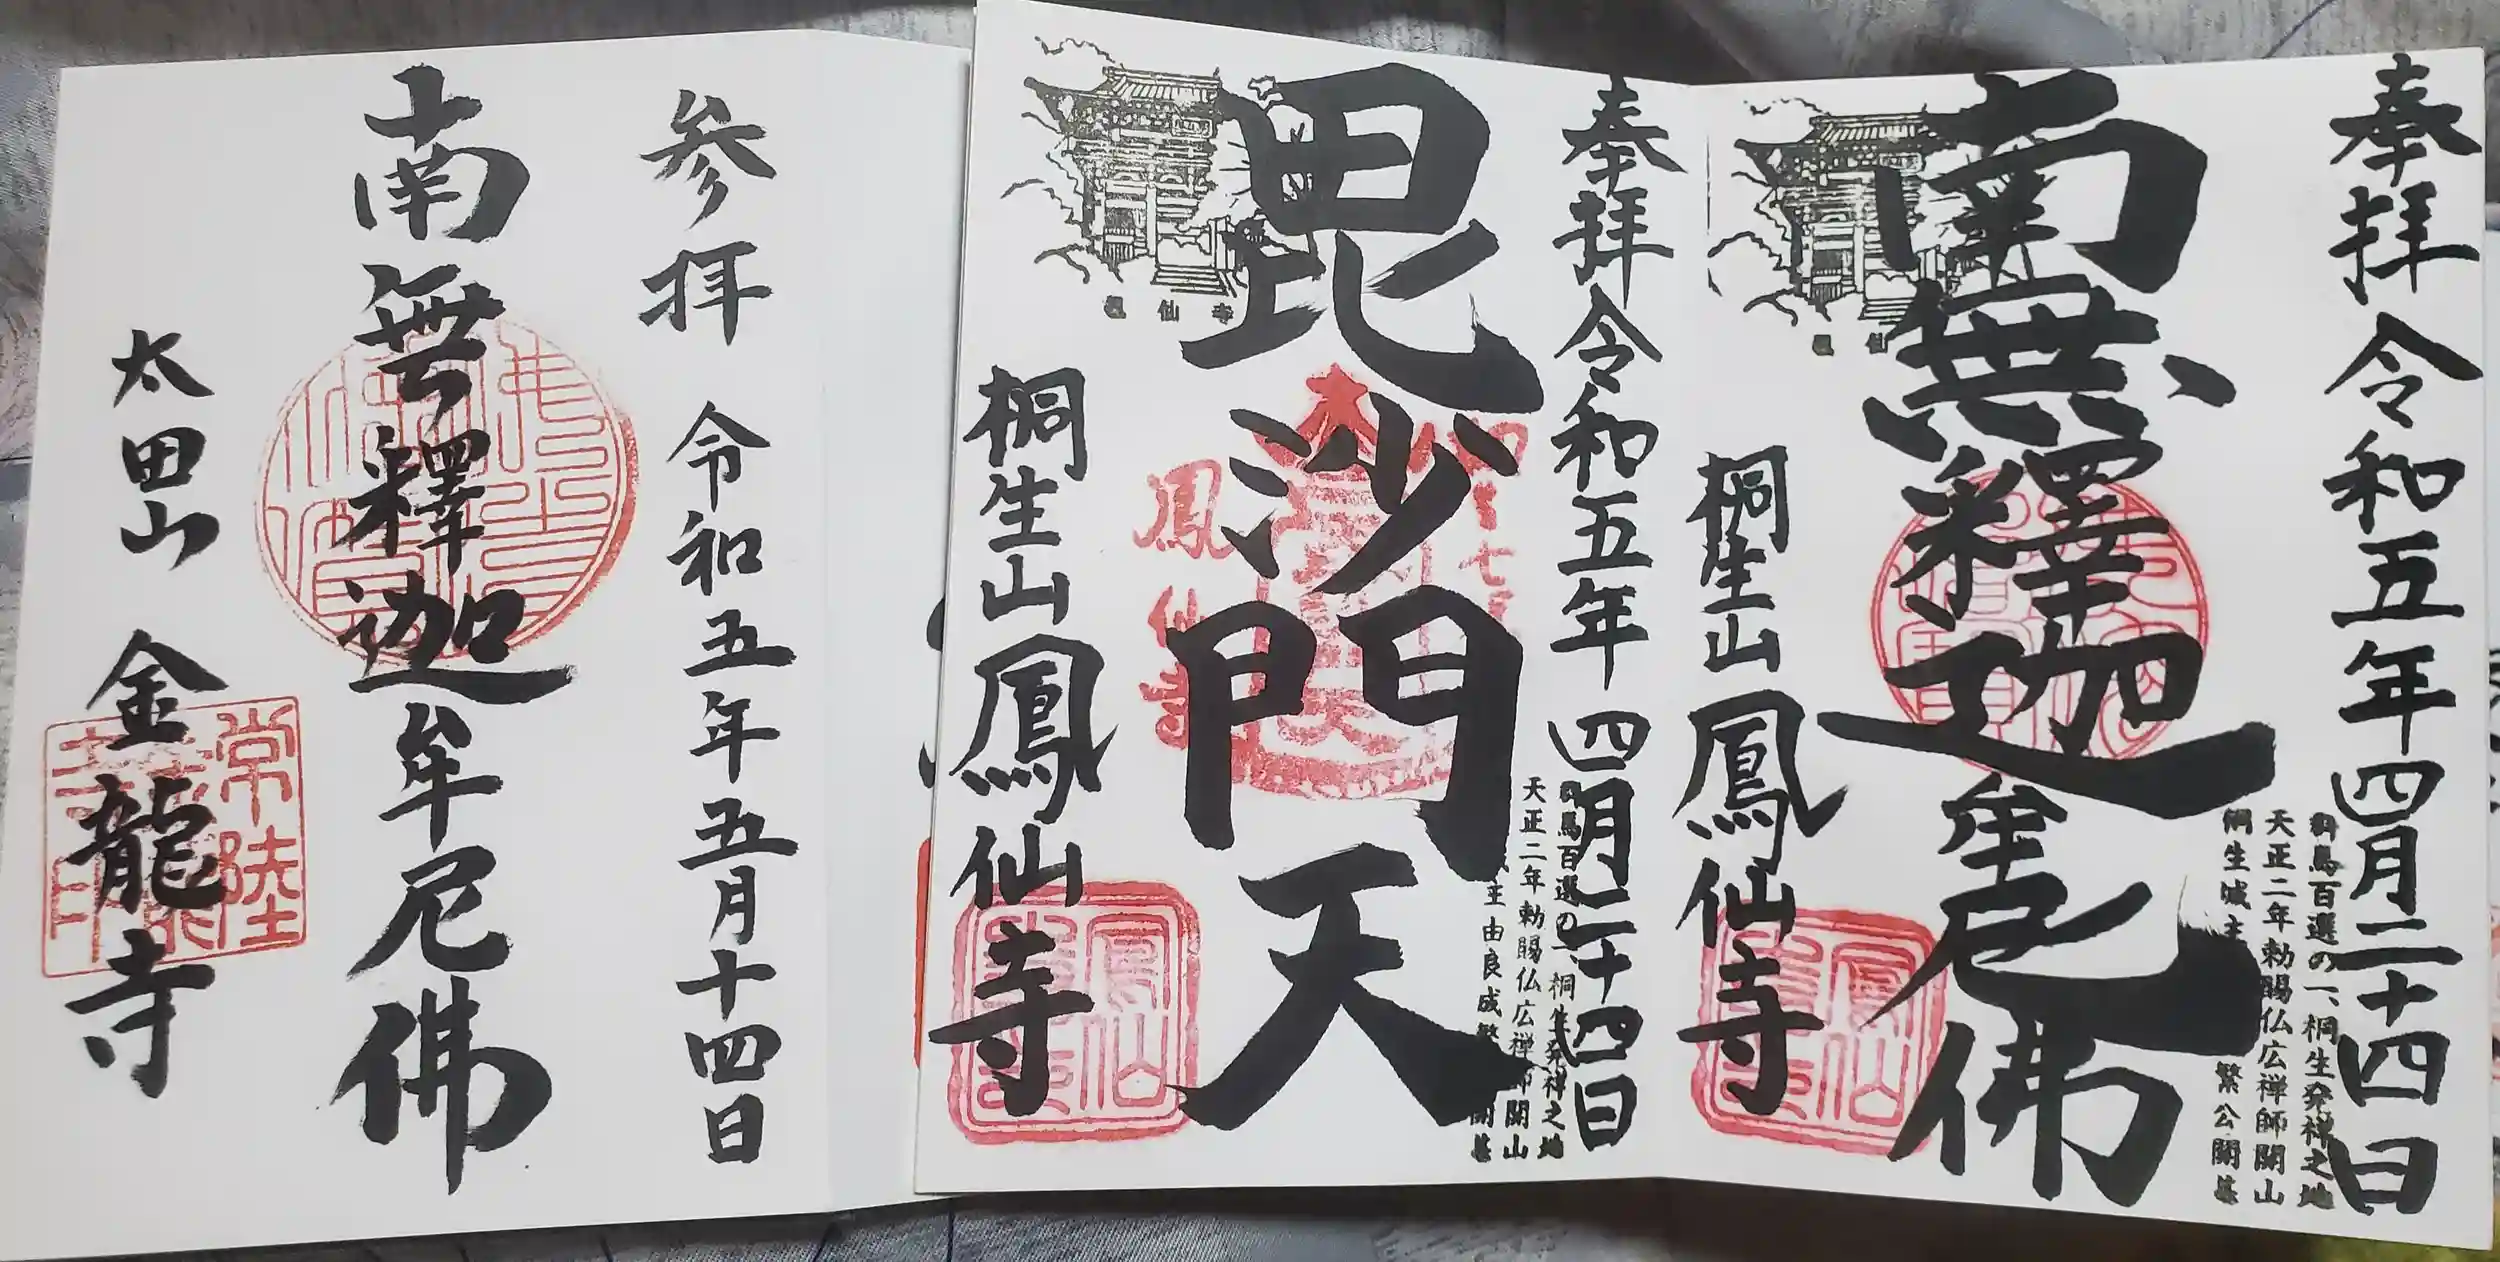 奉拝 令和五年四月二十四日
群馬百選の一、桐生発祥之地
天正二年勅賜仏広禅師開山
桐生城主 繁公開基
南無釋迦牟尼佛
桐生山 鳳仙寺
鳳仙
奉拝 令和五年四月二十四日
群馬百選の一、桐生発祥之地
天正二年勅賜仏広禅師開山
主由良成繁 開基
毘沙門天
鳳仙寺
仙寺
桐生山 鳳仙寺
鳳仙
参拝 令和五年五月十四日
南無釋迦牟尼佛
太田山 金龍寺
常陸